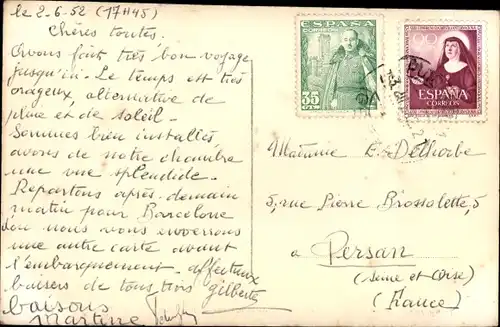 le 2-6-52 (17H45)
Chères toutes.
Avons fait très bon voyage
jusqu'ici. Le temps est très
orageux, alternative de
pluie et de soleil.
Sommes bien installés
avons de notre chambre
une vue splendide.
Repartons après-demain
matin pour Barcelone
d'ou nous vous enverrons
une autre carte avant
l'embarquement. affectueux
baisers de tous trois gilberte
baisons
Martine
ESPAÑA
35
CTS
ESPAÑA
CORREOS
Madame E. Delhorbe
5, rue Pierre Brossolette, 5
à Persan
(Seine et Oise)
(France)